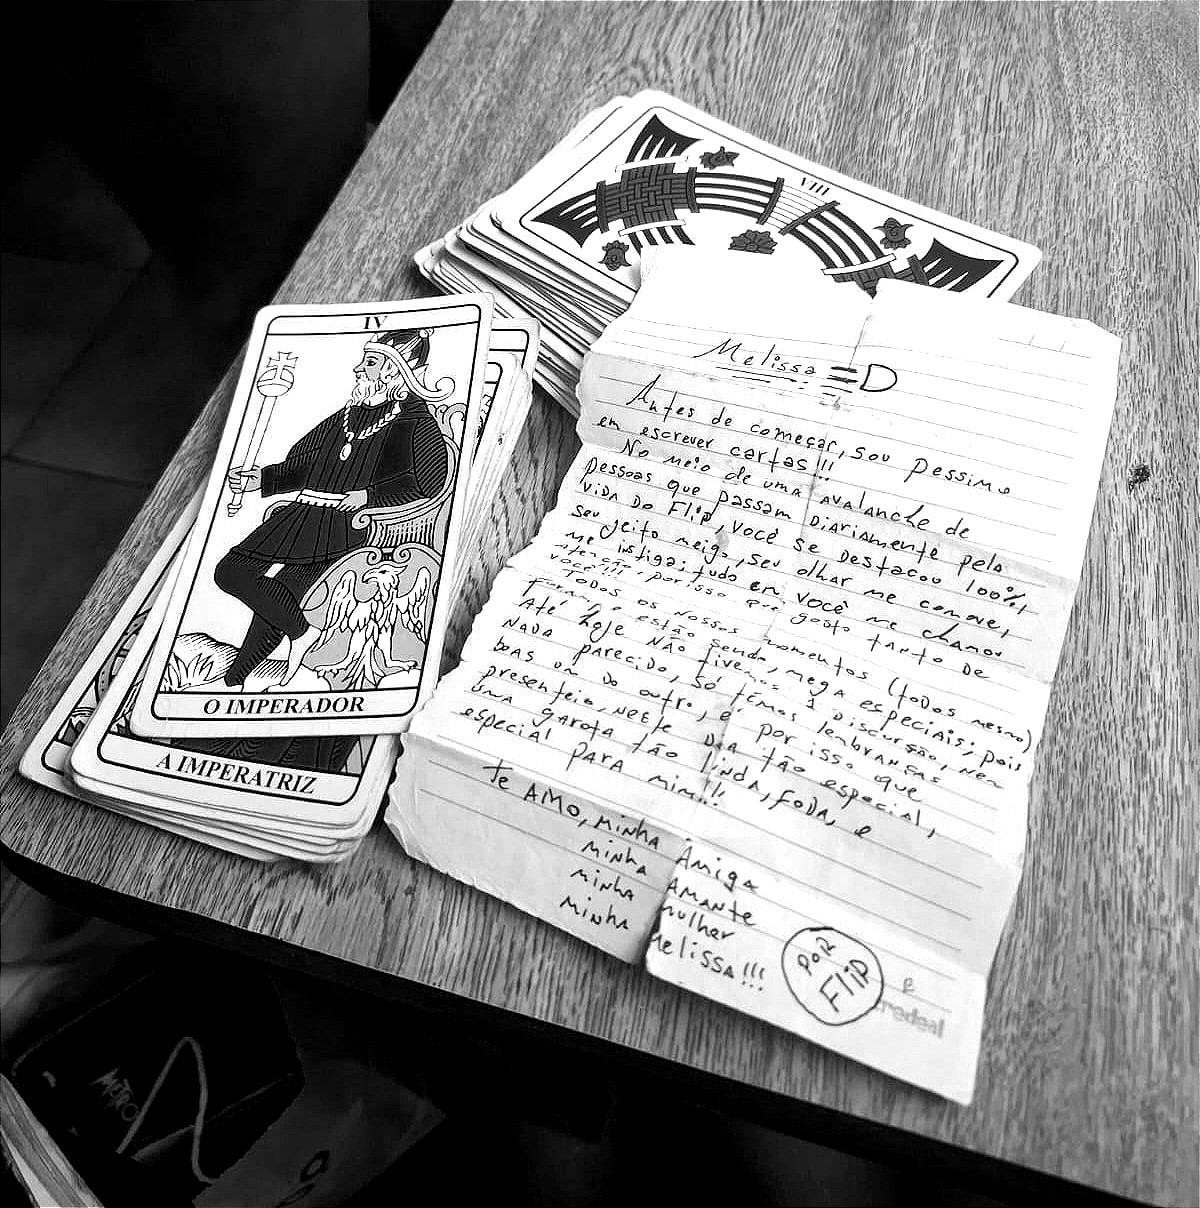 VIII
IV
O IMPERADOR
A IMPERATRIZ
Melissa =D
Antes de começar, sou pessimo
em escrever cartas!!
No meio de uma avalanche de
pessoas que passam diariamente pela
vida do Flip, você se destacou 100%,
seu jeito meigo, seu olhar me comove,
me instiga; tudo em você me chamou
atenção, por isso que gosto tanto de
você!!!
Todos os nossos momentos (todos mesmo)
foram e estão sendo, mega especiais; pois
Até hoje não tivemos 1 discursão, nem
nada parecido, só têmos lembranças
boas um do outro, é por isso que
presenteio, neste dia tão especial,
uma garota tão linda, foda, e
especial para mim!!!
Te AMO, minha Amiga
minha Amante
minha mulher
minha Melissa!!!
POR
Flip
credeal
METRO